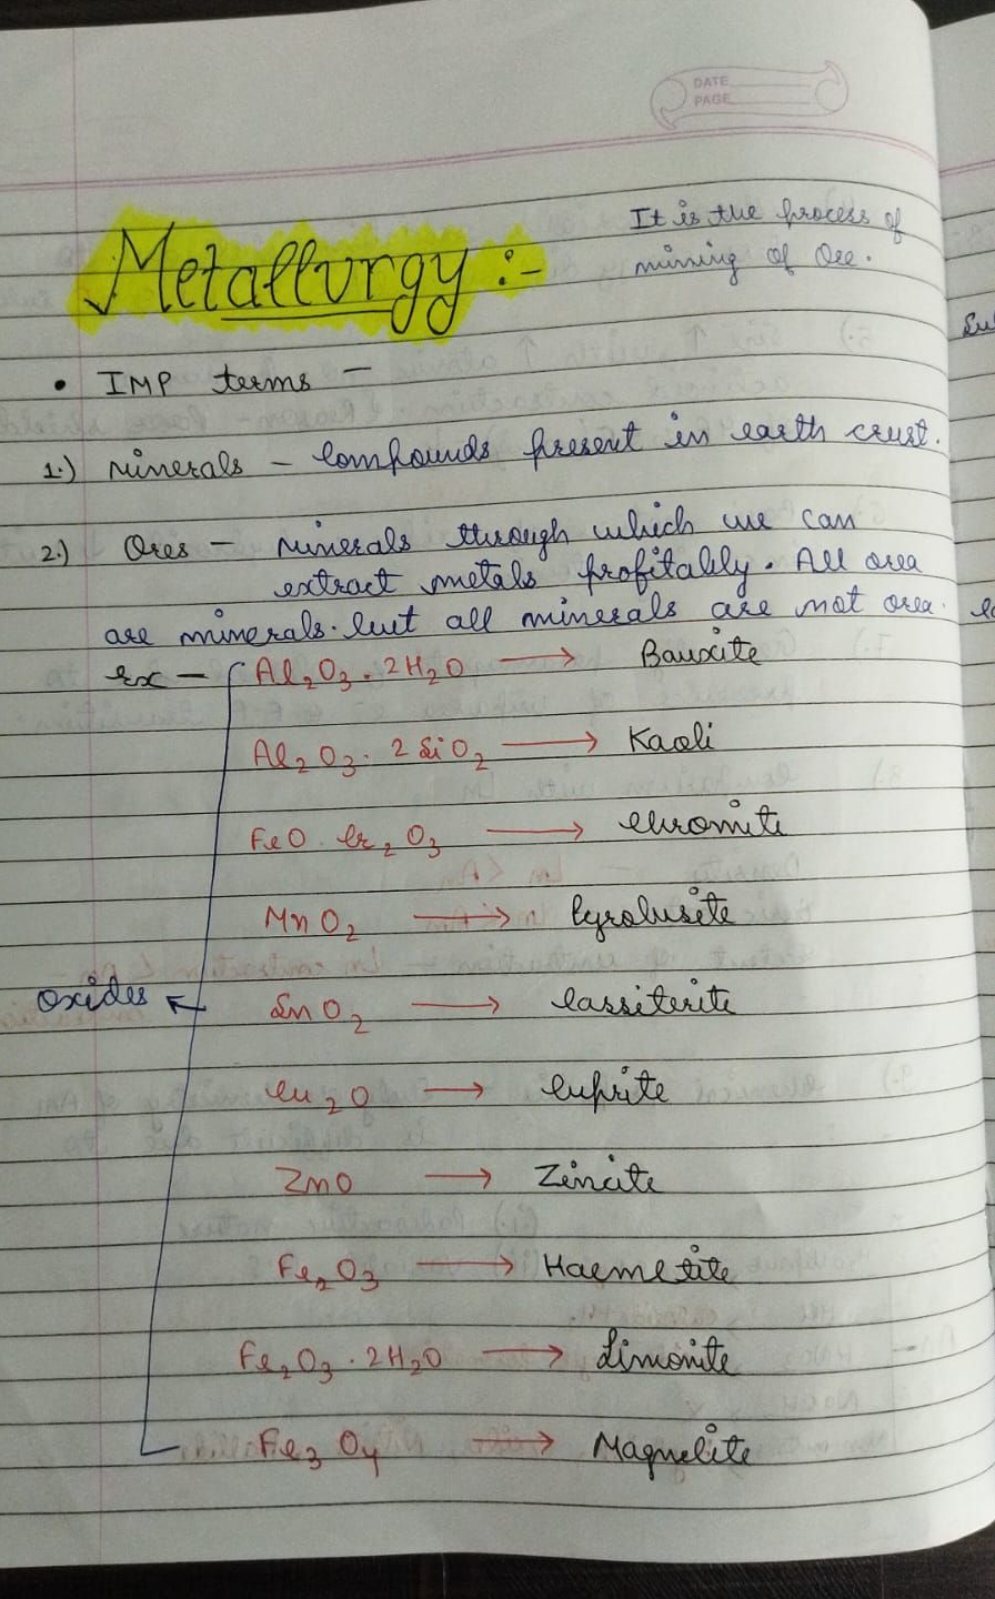 DATE
PAGE
It is the process of
mining of Ore.
Metallurgy :-
• IMP terms -
1.) Minerals - Compounds present in earth crust.
2.) Ores - Minerals through which we can
extract metals profitably. All ores
are minerals. but all minerals are not ores.
ex - Al₂O₃.2H₂O → Bauxite
Al₂O₃.2SiO₂ → Kaoli
FeO.Cr₂O₃ → Chromite
MnO₂ → Pyrolusite
Oxides ← SnO₂ → Cassiterite
Cu₂O → Cuprite
ZnO → Zincite
Fe₂O₃ → Haemetite
Fe₂O₃.2H₂O → Limonite
Fe₃O₄ → Magnetite